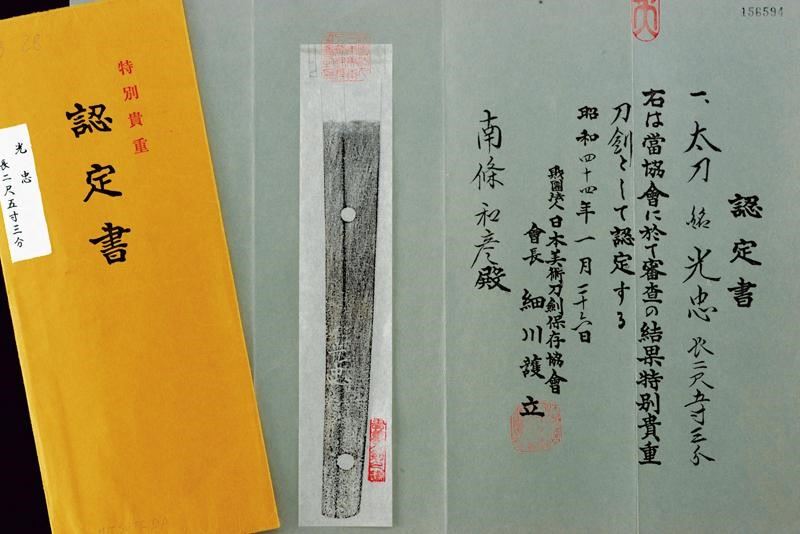 特別貴重
認定書
光忠
長二尺五寸三分
156594
認定書
一、太刀 銘 光忠 長二尺五寸三分
右は當協會に於て審査の結果特別貴重
刀劍として認定する
昭和四十四年一月二十六日
財團法人日本美術刀劍保存協會
會長 細川護立
南條和彦殿
光忠